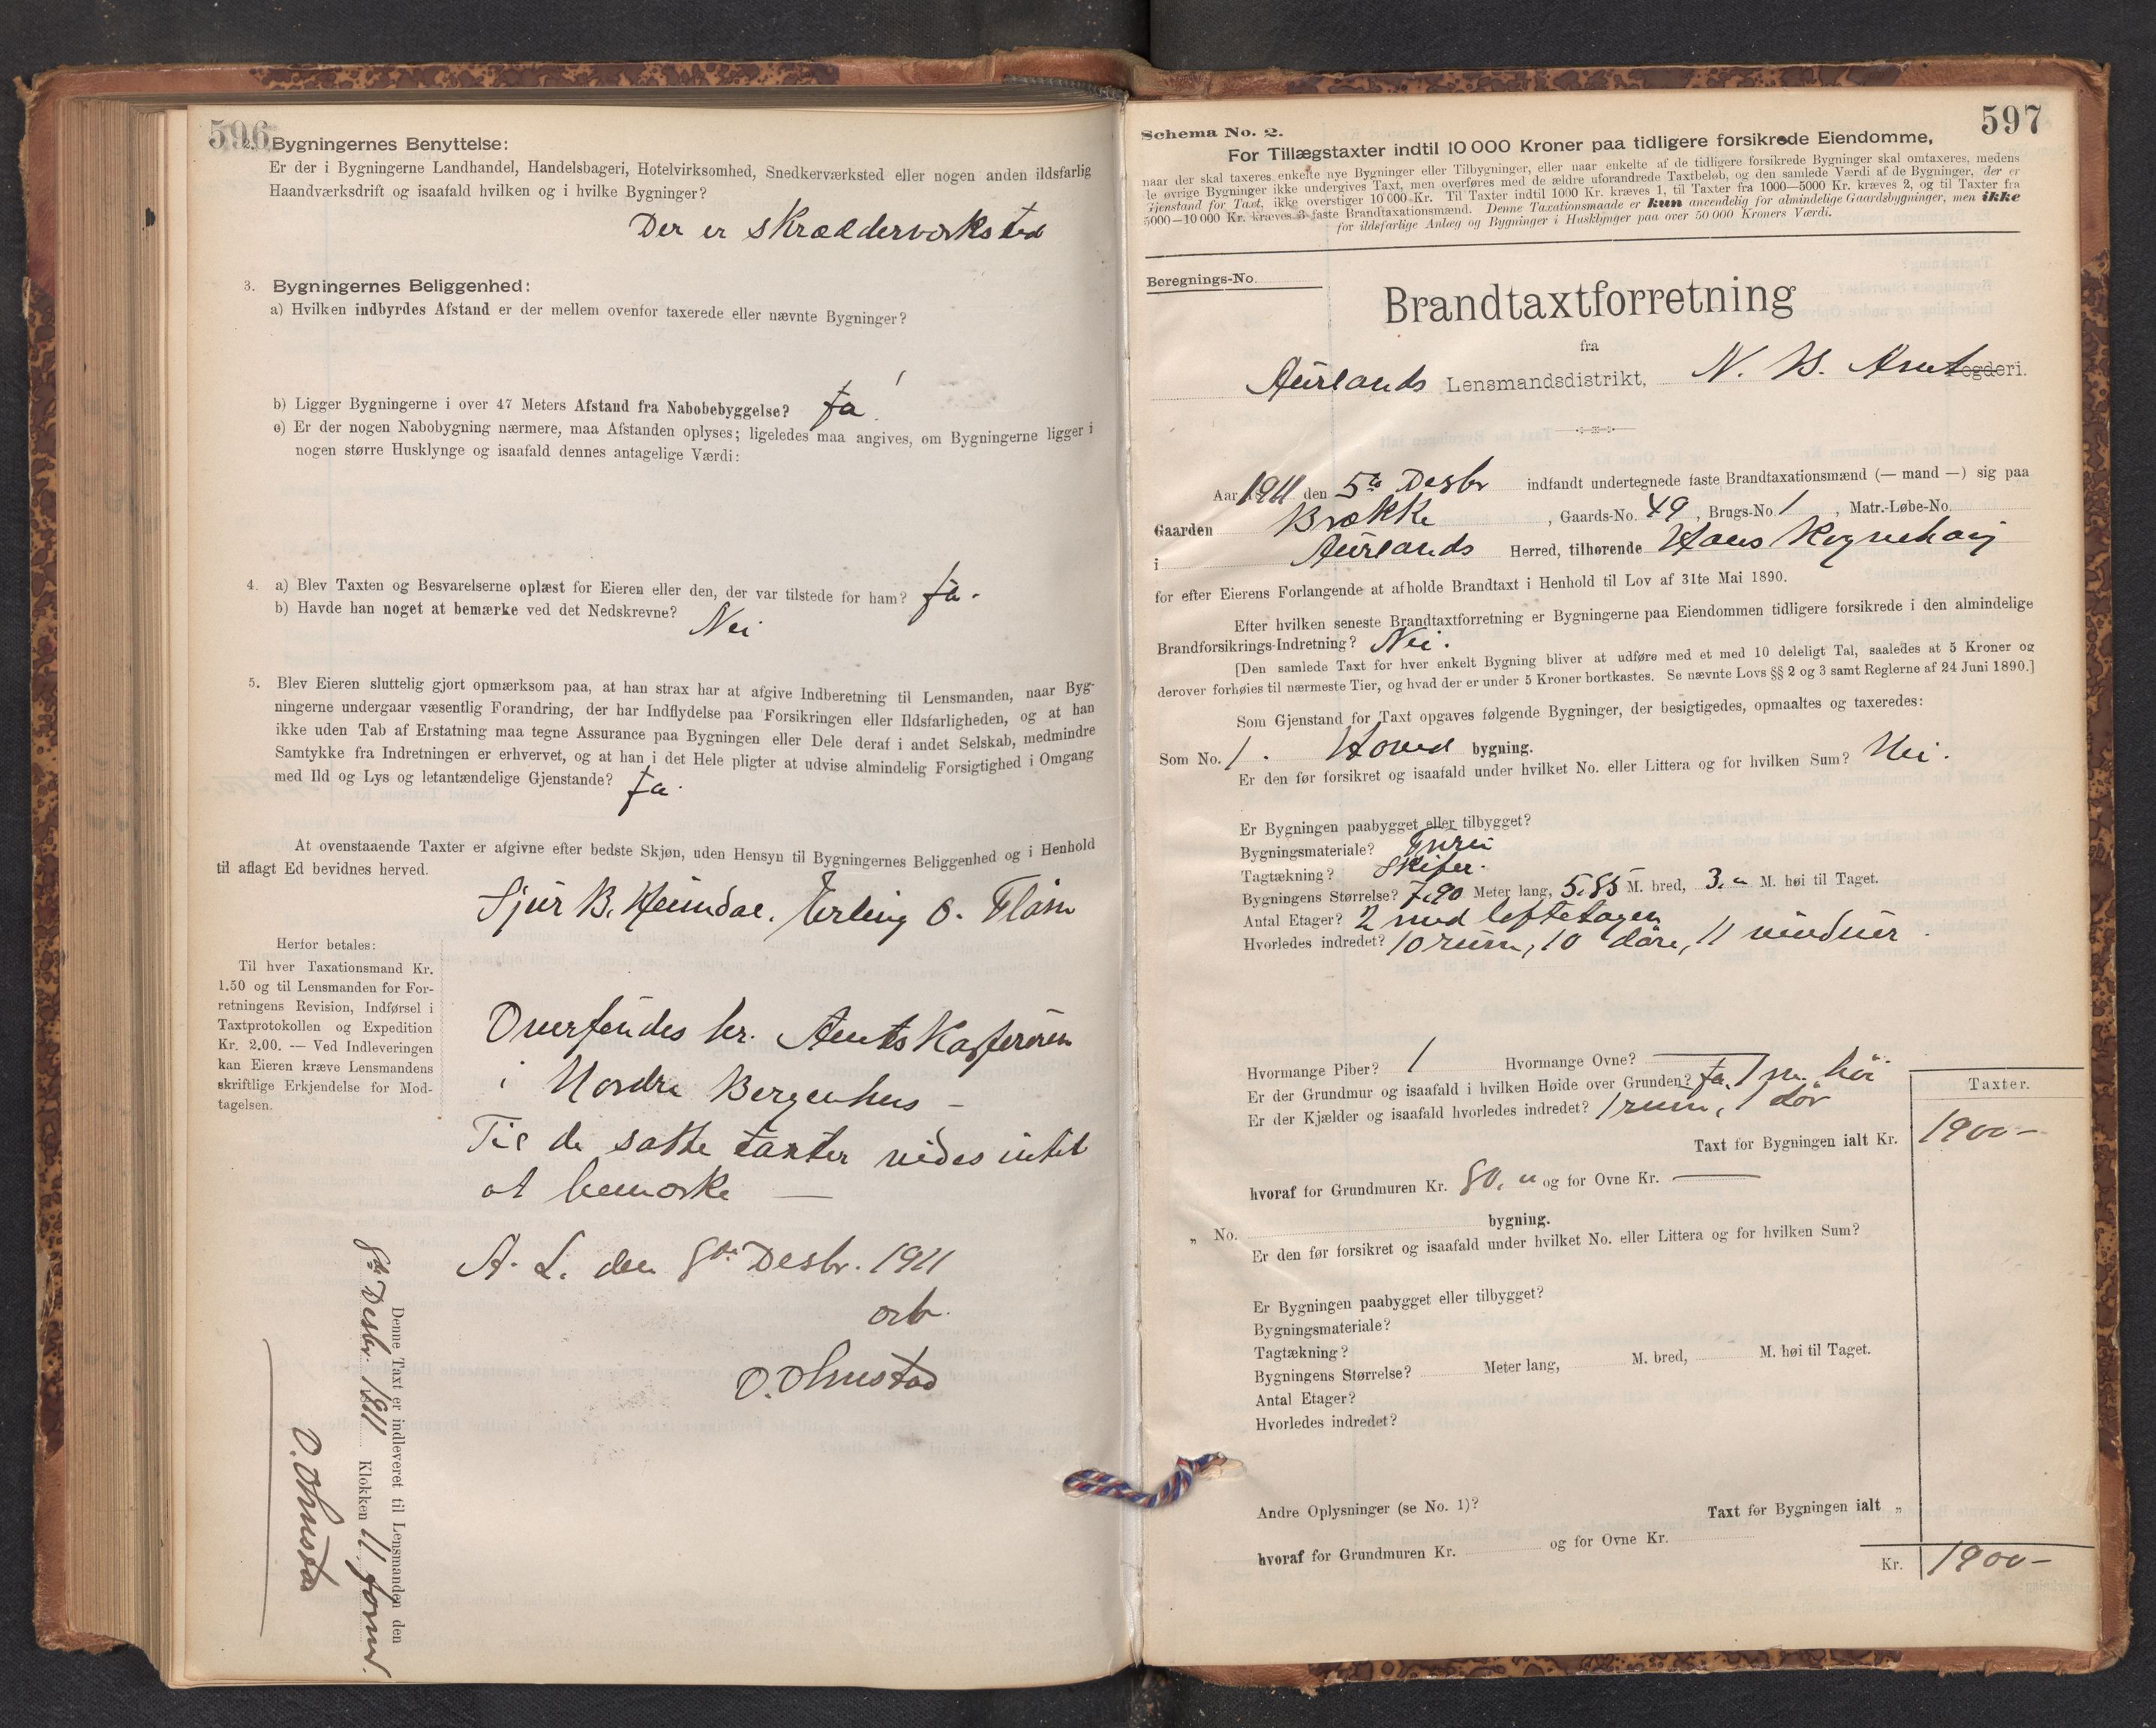 596
2. Bygningernes Benyttelse:
Er der i Bygningerne Landhandel, Handelsbageri, Hotelvirksomhed, Snedkerværksted eller nogen anden ildsfarlig
Haandværksdrift og isaafald hvilken og i hvilke Bygninger?
Der er skrædderværksted
3. Bygningernes Beliggenhed:
a) Hvilken indbyrdes Afstand er der mellem ovenfor taxerede eller nævnte Bygninger?
b) Ligger Bygningerne i over 47 Meters Afstand fra Nabobebyggelse? Ja!
c) Er der nogen Nabobygning nærmere, maa Afstanden oplyses; ligeledes maa angives, om Bygningerne ligger i
nogen større Husklynge og isaafald dennes antagelige Værdi:
4. a) Blev Taxten og Besvarelserne oplæst for Eieren eller den, der var tilstede for ham? Ja.
b) Havde han noget at bemærke ved det Nedskrevne? Nei
5. Blev Eieren sluttelig gjort opmærksom paa, at han strax har at afgive Indberetning til Lensmanden, naar Byg-
ningerne undergaar væsentlig Forandring, der har Indflydelse paa Forsikringen eller Ildsfarligheden, og at han
ikke uden Tab af Erstatning maa tegne Assurance paa Bygningen eller Dele deraf i andet Selskab, medmindre
Samtykke fra Indretningen er erhvervet, og at han i det Hele pligter at udvise almindelig Forsigtighed i Omgang
med Ild og Lys og letantændelige Gjenstande? Ja.
At ovenstaaende Taxter er afgivne efter bedste Skjøn, uden Hensyn til Bygningernes Beliggenhed og i Henhold
til aflagt Ed bevidnes herved.
Sjur B. Heimdal. Erling O. Flåm
Herfor betales:
Til hver Taxationsmand Kr.
1.50 og til Lensmanden for For-
retningens Revision, Indførsel i
Taxtprotokollen og Expedition
Kr. 2.00. — Ved Indleveringen
kan Eieren kræve Lensmandens
skriftlige Erkjendelse for Mod-
tagelsen.
Oversendes hr. Amtskasserøren
i Nordre Bergenhus —
Til de satte taxter vides intet
at bemærke —
A. L. den 8de Desbr. 1911
ærb.
O. Ohnstad
Denne Taxt er indleveret til Lensmanden den
8de Desbr. 1911 Klokken 11 formd.
O. Ohnstad
597
Schema No. 2.
For Tillægstaxter indtil 10 000 Kroner paa tidligere forsikrede Eiendomme,
naar der skal taxeres enkelte nye Bygninger eller Tilbygninger, eller naar enkelte af de tidligere forsikrede Bygninger skal omtaxeres, medens
de øvrige Bygninger ikke undergives Taxt, men overføres med de ældre uforandrede Taxtbeløb, og den samlede Værdi af de Bygninger, der er
Gjenstand for Taxt, ikke overstiger 10 000 Kr. Til Taxter indtil 1000 Kr. kræves 1, til Taxter fra 1000—5000 Kr. kræves 2, og til Taxter fra
5000—10 000 Kr. kræves 3 faste Brandtaxationsmænd. Denne Taxationsmaade er kun anvendelig for almindelige Gaardsbygninger, men ikke
for ildsfarlige Anlæg og Bygninger i Husklynger paa over 50 000 Kroners Værdi.
Beregnings-No.
Brandtaxtforretning
fra
Aurlands Lensmandsdistrikt, N. B. Amt Fogderi.
Aar 1911 den 5te Desbr indfandt undertegnede faste Brandtaxationsmænd (— mand —) sig paa
Gaarden Brække, Gaards-No. 49, Brugs-No. 1, Matr.-Løbe-No.
i Aurlands Herred, tilhørende Hans
for efter Eierens Forlangende at afholde Brandtaxt i Henhold til Lov af 31te Mai 1890.
Efter hvilken seneste Brandtaxtforretning er Bygningerne paa Eiendommen tidligere forsikrede i den almindelige
Brandforsikrings-Indretning? Nei.
[Den samlede Taxt for hver enkelt Bygning bliver at udføre med et med 10 deleligt Tal, saaledes at 5 Kroner og
derover forhøies til nærmeste Tier, og hvad der er under 5 Kroner bortkastes. Se nævnte Lovs §§ 2 og 3 samt Reglerne af 24 Juni 1890.]
Som Gjenstand for Taxt opgaves følgende Bygninger, der besigtigedes, opmaaltes og taxeredes:
Som No. 1. Hoved bygning.
Er den før forsikret og isaafald under hvilket No. eller Littera og for hvilken Sum? Nei.
Er Bygningen paabygget eller tilbygget?
Bygningsmateriale? Furu
Tagtækning? Skifer.
Bygningens Størrelse? 7,90 Meter lang, 5,85 M. bred, 3," M. høi til Taget.
Antal Etager? 2 med loftetagen
Hvorledes indredet? 10 rum, 10 döre, 11 vinduer.
Hvormange Piber? 1 Hvormange Ovne? —
Er der Grundmur og isaafald i hvilken Høide over Grunden? Ja, 1 m. høi
Er der Kjælder og isaafald hvorledes indredet? 1 rum, 1 dör
Taxter.
Taxt for Bygningen ialt Kr. 1900—
hvoraf for Grundmuren Kr. 80," og for Ovne Kr. —
„ No. bygning.
Er den før forsikret og isaafald under hvilket No. eller Littera og for hvilken Sum?
Er Bygningen paabygget eller tilbygget?
Bygningsmateriale?
Tagtækning?
Bygningens Størrelse? Meter lang, M. bred, M. høi til Taget.
Antal Etager?
Hvorledes indredet?
Andre Oplysninger (se No. 1)? Taxt for Bygningen ialt „
hvoraf for Grundmuren Kr. og for Ovne Kr.
Kr. 1900—